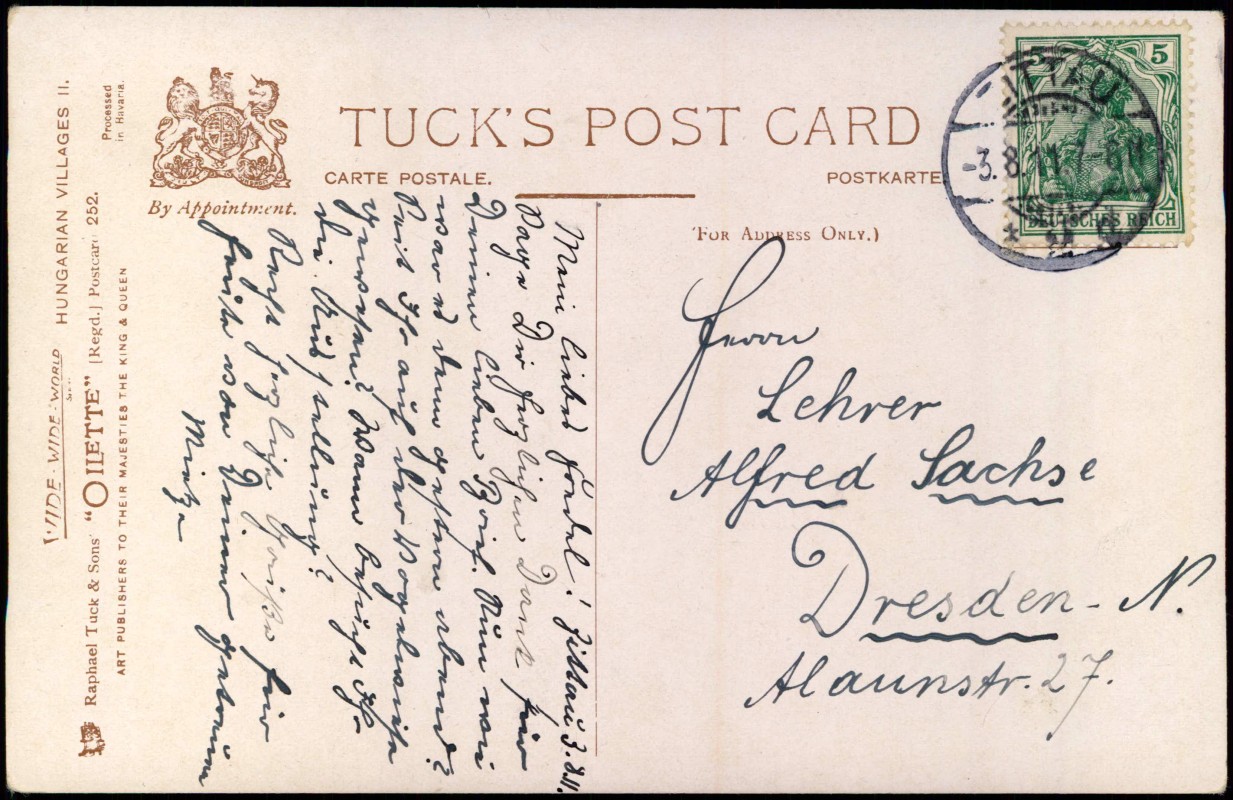 WIDE-WIDE-WORLD
HUNGARIAN VILLAGES II.
Raphael Tuck & Sons' "OILETTE" [Regd.] Postcard 252.
ART PUBLISHERS TO THEIR MAJESTIES THE KING & QUEEN
Processed
in Bavaria.
By Appointment.
TUCK'S POST CARD
CARTE POSTALE.
POSTKARTE.
(FOR ADDRESS ONLY.)
5 5
DEUTSCHES REICH
ITTAU
-3.8.11.
Mein liebes! Zittau 3.8.11.
Sage Dir herzlichen Dank für
Deinen lieben Brief. Nun wie
war es denn gestern abend?
Seid Ihr auf der Vogelwiese
gewesen? Wann besucht Ihr
die Ausstellung?
Recht herzliche Grüße für
heute von Deiner getreuen
Herrn
Lehrer
Alfred Sachse
Dresden-N.
Alaunstr. 27.